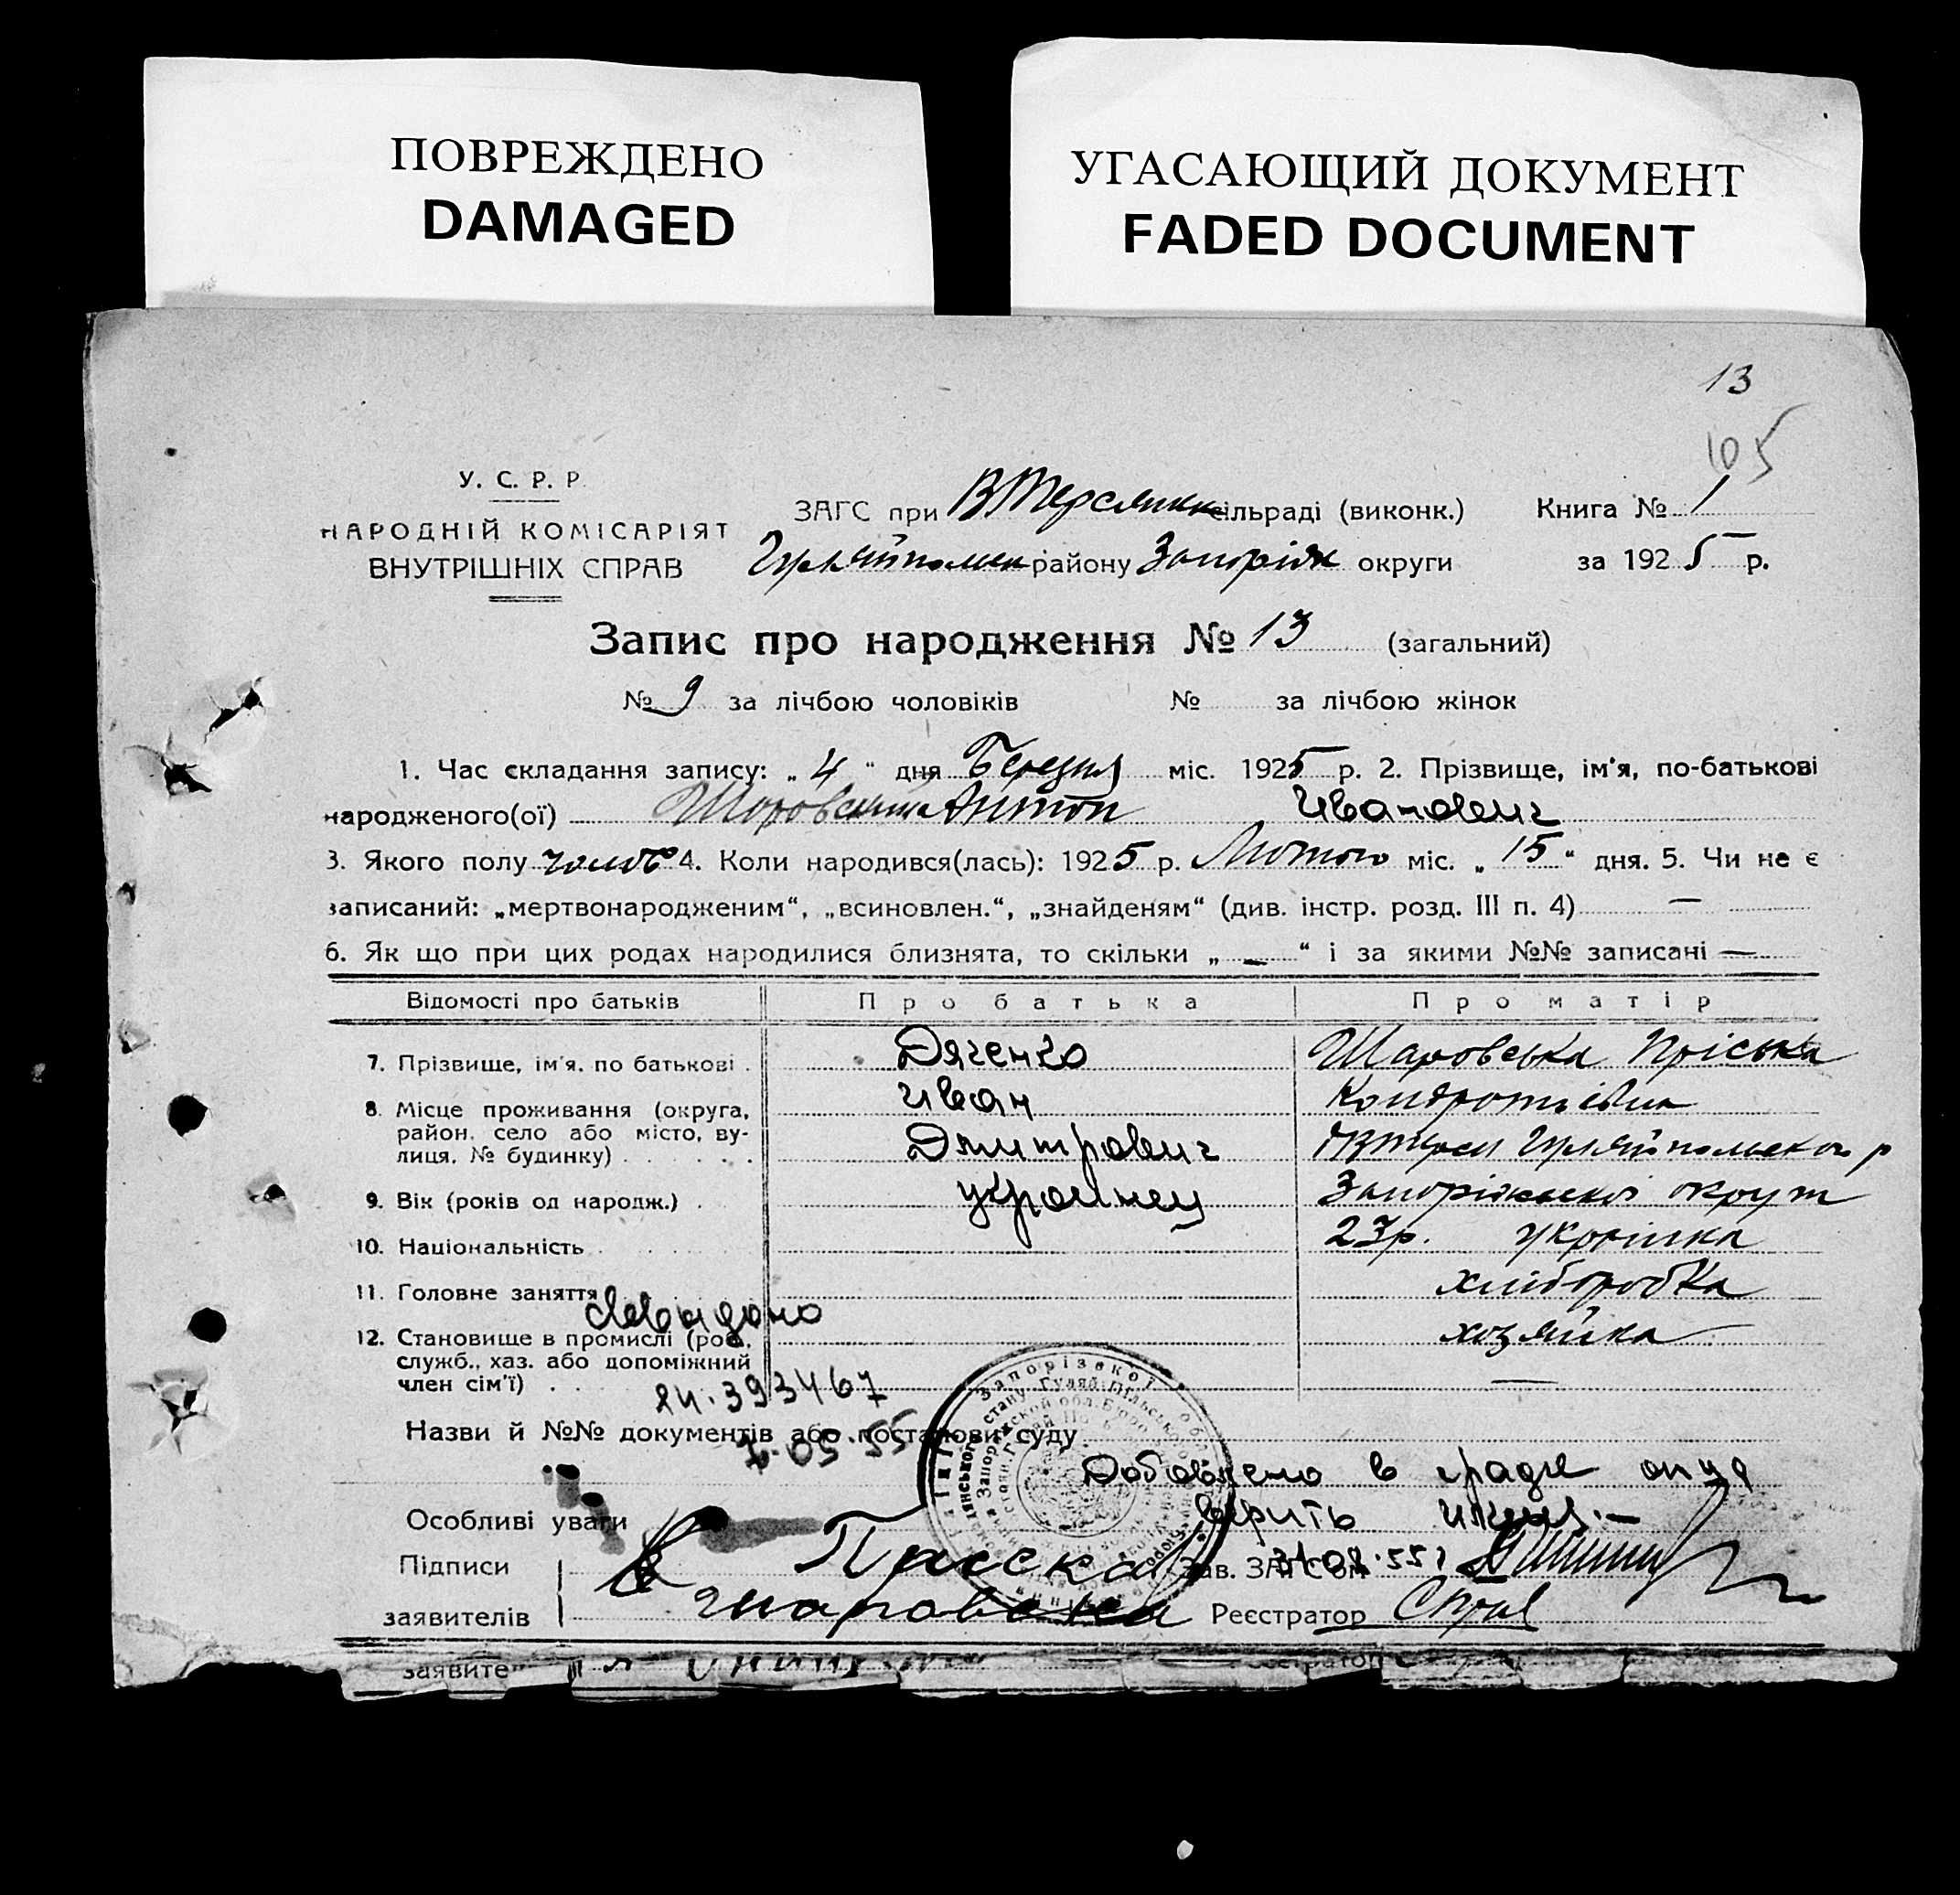 ПОВРЕЖДЕНО
DAMAGED
УГАСАЮЩИЙ ДОКУМЕНТ
FADED DOCUMENT
13
105
У. С. Р. Р.
НАРОДНІЙ КОМІСАРІЯТ
ВНУТРІШНІХ СПРАВ
ЗАГС при сільраді (виконк.) Книга № 1
району Запоріж округи за 1925 р.
Запис про народження № 13 (загальний)
№ 9 за лічбою чоловіків № за лічбою жінок
1. Час складання запису: „ 4 “ дня Березня міс. 1925 р. 2. Прізвище, ім'я, по-батькові
народженого(ої) Шаровський Антон Иванович
3. Якого полу чолов 4. Коли народився(лась): 1925 р. Лютого міс. „ 15 “ дня. 5. Чи не є
записаний: „мертвонародженим“, „всиновлен.“, „знайденям“ (див. інстр. розд. III п. 4) —
6. Як що при цих родах народилися близнята, то скільки „ — “ і за якими №№ записані —
Відомості про батьків Про батька Про матір
7. Прізвище, ім'я, по батькові Дяченко Шаровська Пріська
8. Місце проживання (округа, район, село або місто, вулиця, № будинку) Иван Кондратієвна
Дмитрович
9. Вік (років од народж.) украинец Запоріжської округи
10. Національність 23р. українка
11. Головне заняття хліборобка
12. Становище в промислі (роб., служб., хаз. або допоміжний член сім'ї) хозяйка
393467
Назви й №№ документів або постанови суду
7.05.55
Добавлено в графе отца
Особливі уваги верить
Підписи заявителів Приска Шаровска
Зав. ЗАГСом
31.08.55
Реєстратор